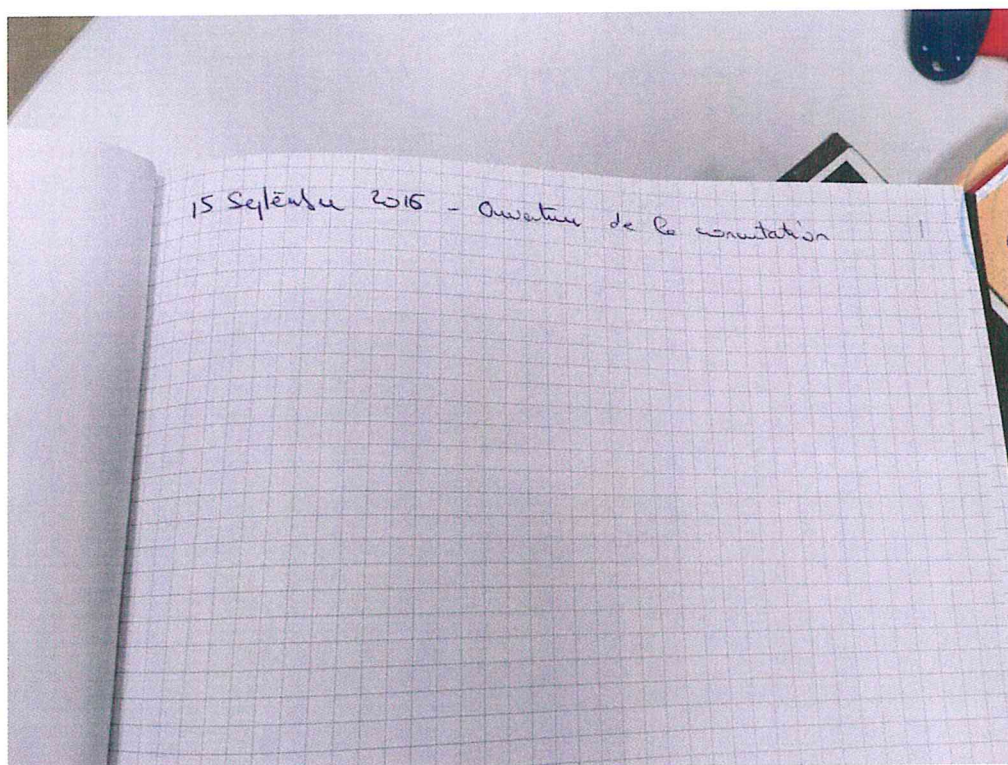 15 Septembre 2016 - Ouverture de la concertation 1